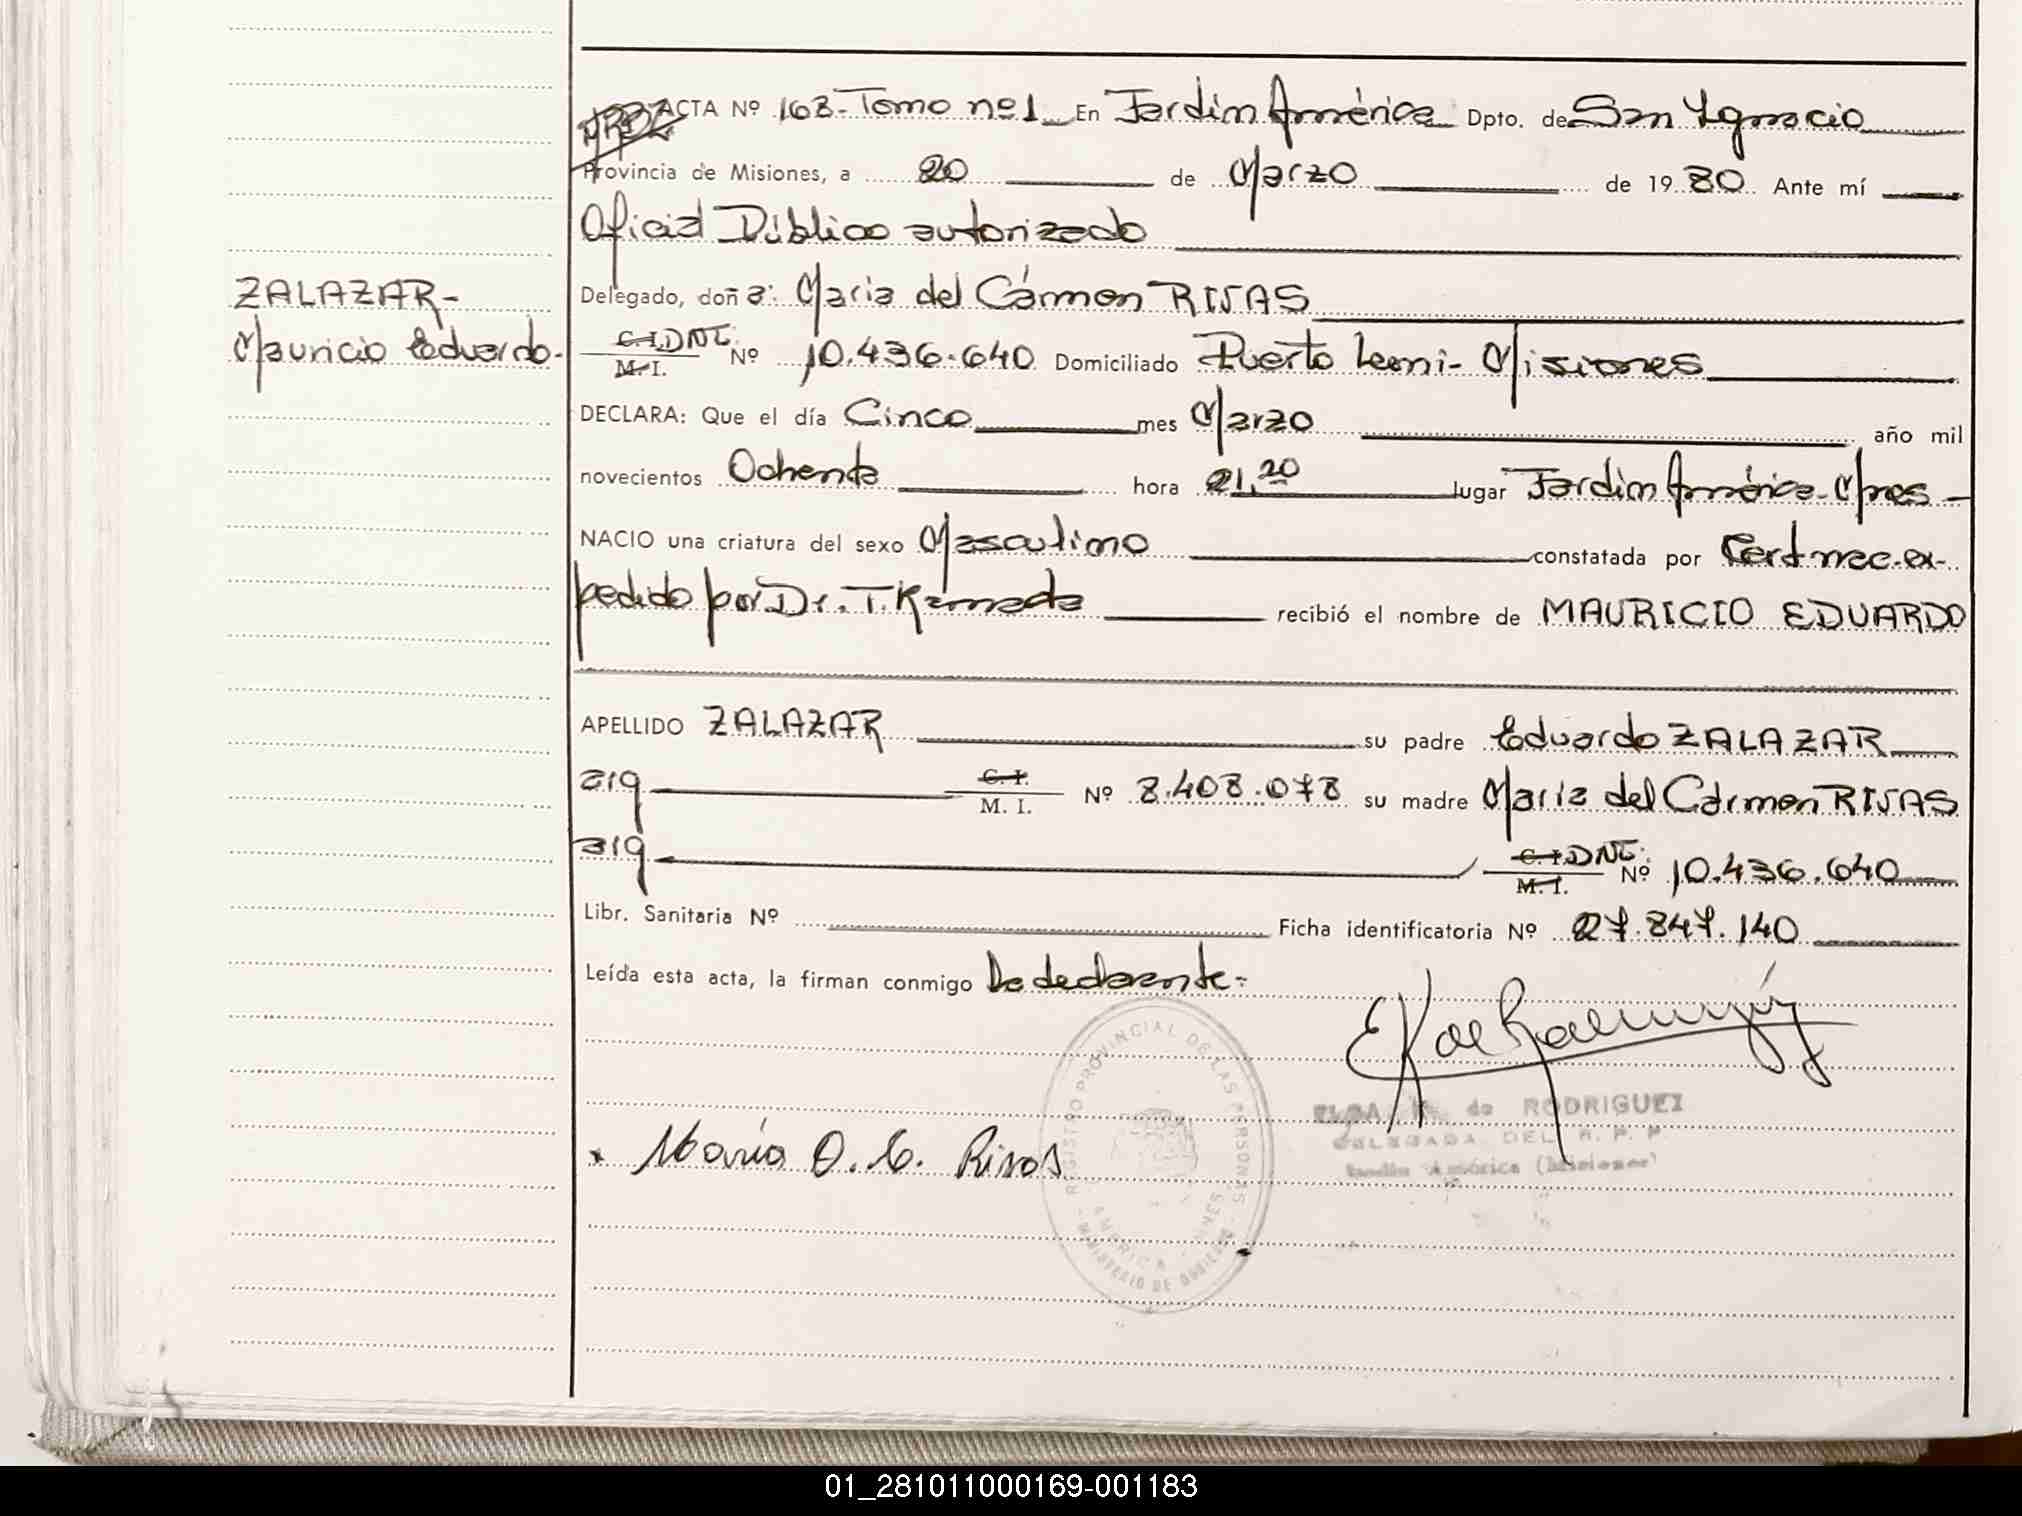 ACTA Nº 168- Tomo nº1 En Jardín América Dpto. de San Ignacio
Provincia de Misiones, a 20 de Marzo de 1980 Ante mí
Oficial Público autorizado
ZALAZAR-
Mauricio Eduardo-
Delegado, doña: Maria del Cármen RIVAS
C.I. DNI. M.I. Nº 10.436.640 Domiciliado Puerto Leoni- Misiones
DECLARA: Que el día Cinco mes Marzo año mil
novecientos Ochenta hora 21,20 lugar Jardín América- Mnes-
NACIO una criatura del sexo Masculino constatada por Cert mec. ex-
pedido por Dr. T. Kameda recibió el nombre de MAURICIO EDUARDO
APELLIDO ZALAZAR su padre Eduardo ZALAZAR
arg C.I. M.I. Nº 8.408.078 su madre Maria del Cármen RIVAS
arg C.I. DNI. M.I. Nº 10.436.640
Libr. Sanitaria Nº Ficha identificatoria Nº 27.847.140
Leída esta acta, la firman conmigo La declarante-
REGISTRO PROVINCIAL DE LAS PERSONAS
AMERICA - MNES
MINISTERIO DE GOBIERNO
ELSA K. de RODRIGUEZ
DELEGADA DEL R. P. P.
Jardín América (Misiones)
María D. C. Rivas
01_281011000169-001183